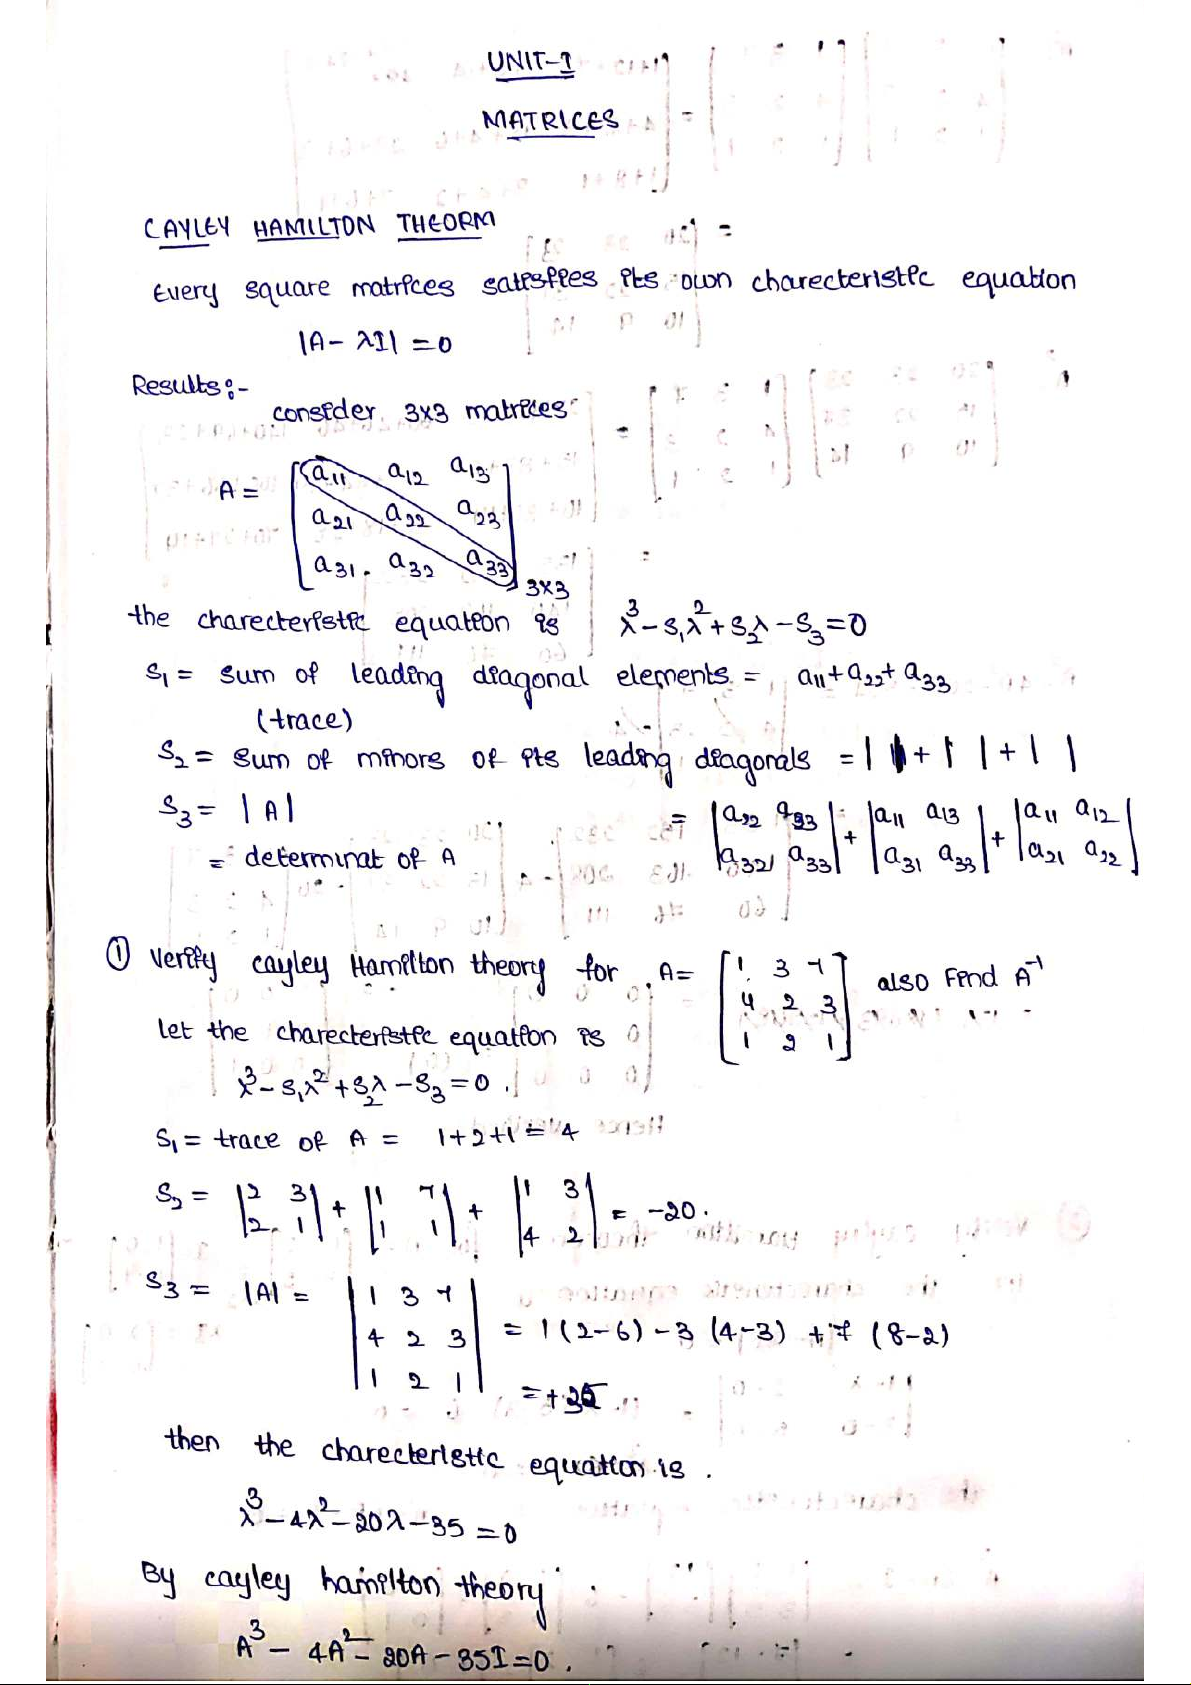 UNIT-I
MATRICES
CAYLEY HAMILTON THEORM
Every square matrices satisfies its own charecteristic equation
|A- λI| =0
Results:-
consider 3x3 matrices
A = [a11 a12 a13
a21 a22 a23
a31. a32 a33] 3x3
the charecteristic equation is λ³-S₁λ²+S₂λ-S₃=0
S₁ = sum of leading diagonal elements = a11+a22+a33
(trace)
S₂ = sum of minors of its leading diagonals = | |+| |+| |
S₃ = |A| = |a22 a23| + |a11 a13| + |a11 a12|
= determinat of A |a32 a33| |a31 a33| |a21 a22|
① verify cayley Hamilton theory for A= [1 3 7
4 2 3
1 2 1] also Find A⁻¹
let the charecteristic equation is
λ³-S₁λ²+S₂λ-S₃=0.
S₁ = trace of A = 1+2+1 = 4
S₂ = |2 3| + |1 7| + |1 3| = -20.
|2 1| |1 1| |4 2|
S₃ = |A| = |1 3 7|
|4 2 3| = 1(2-6)-3(4-3)+7(8-2)
|1 2 1| = +35
then the charecteristic equation is.
λ³-4λ²-20λ-35=0
By cayley hamilton theory
A³- 4A²- 20A-35I=0.